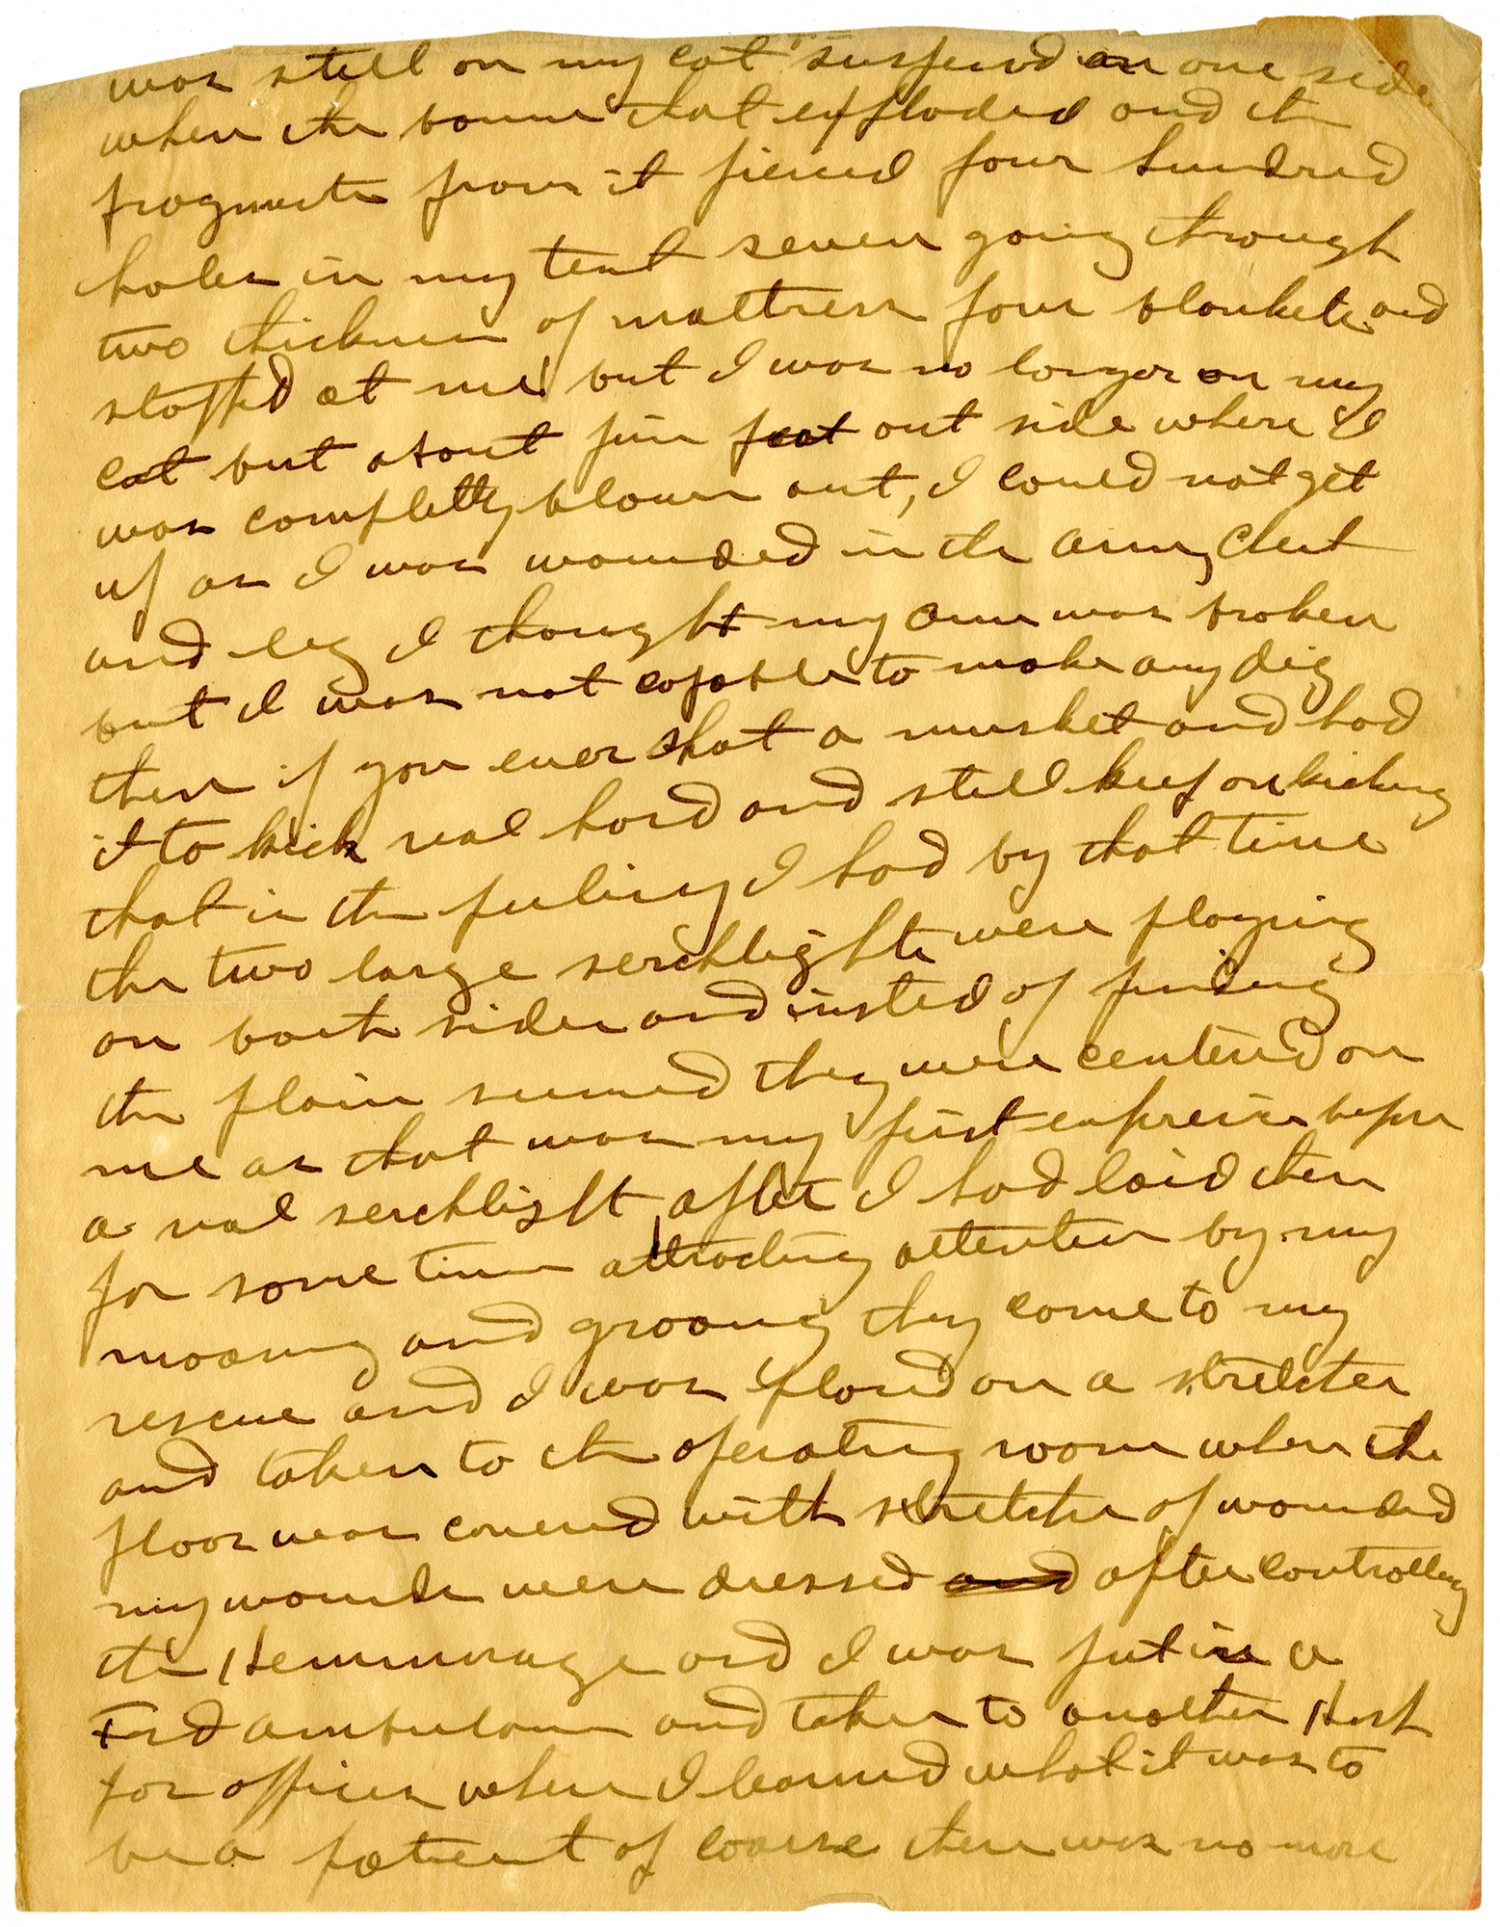 was still on my cot suspend on one side
when the bomm that exploded and the
fragments from it pierced four hundred
holes in my tent seven going through
two thicknes of mattress four blankets and
stopped at me but I was no longer on my
cot but about five feet out side where I
was completty blown out, I could not get
up as I was wounded in the arm, Chest
and leg I thought my arm was broken
but I was not capable to make any dig
then if you ever shot a musket and had
it to kick real hard and still keep on kicking
that is the feeling I had by that time
the two large serchlights were playing
on both sides and insted of finding
the plain seemed they were centered on
me as that was my first expreince before
a real serchlight, after I had laid there
for some time attracting attention by my
moaning and groaing they come to my
rescue and I was placed on a stretcher
and taken to the operating room when the
floor was covered with stretche of wounded
my wounds were dressed and after controlling
the Hemmorage and I was put in a
Ford ambulance and taken to another Hosp
for officers where I learned what it was to
be a patient of coarse there was no more